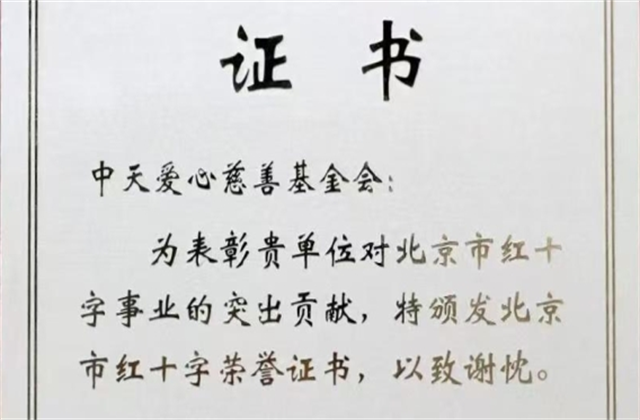 证书
中天爱心慈善基金会：
为表彰贵单位对北京市红十
字事业的突出贡献，特颁发北京
市红十字荣誉证书，以致谢忱。